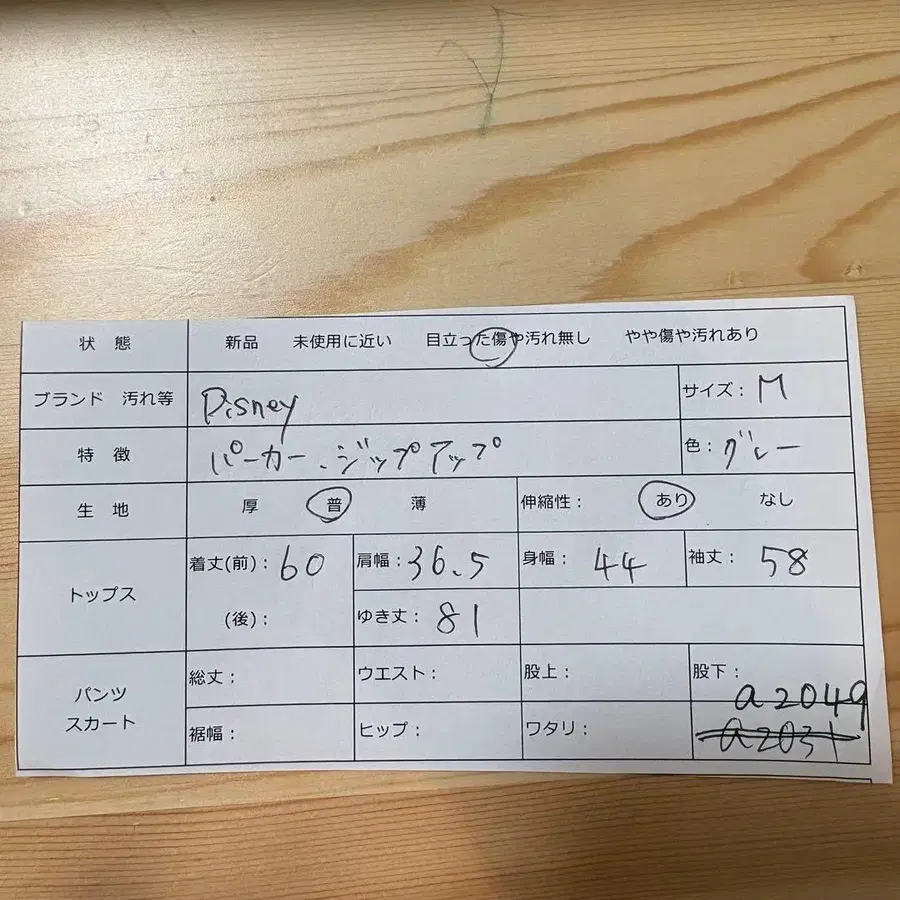 状 態 新品 未使用に近い 目立った傷や汚れ無し やや傷や汚れあり
ブランド 汚れ等 Disney サイズ: M
特 徴 パーカー、ジップアップ 色: グレー
生 地 厚 普 薄 伸縮性: あり なし
トップス 着丈(前): 60 肩幅: 36.5 身幅: 44 袖丈: 58
(後): ゆき丈: 81
パンツ スカート 総丈: ウエスト: 股上: 股下:
a2049
裾幅: ヒップ: ワタリ: a2031